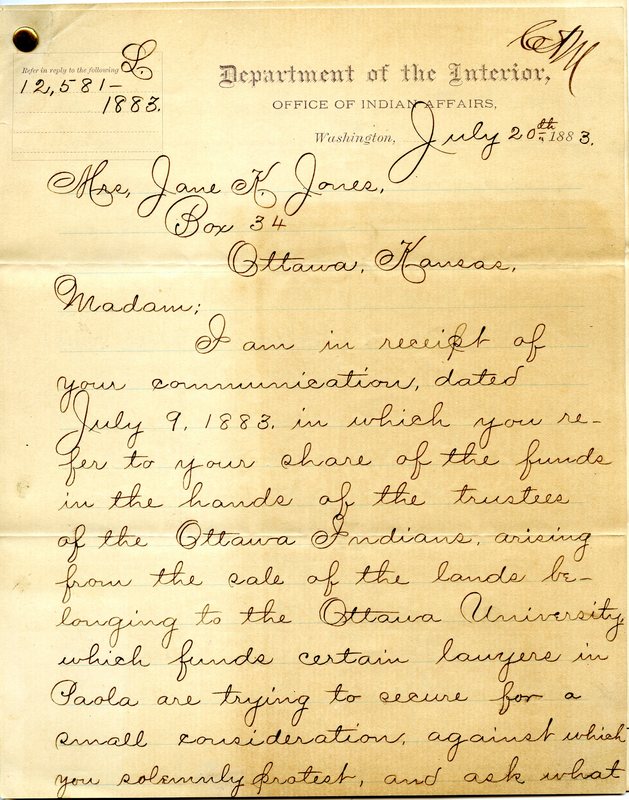 C.F.M
Refer in reply to the following L
Department of the Interior,
12,581-
1883.
OFFICE OF INDIAN AFFAIRS,
Washington, July 20th 1883.
Mrs, Jane K. Jones,
Box 34
Ottawa, Kansas,
Madam;
I am in receipt of
your communication, dated
July 9, 1883. in which you re-
fer to your share of the funds
in the hands of the trustees
of the Ottawa Indians, arising
from the sale of the lands be-
longing to the Ottawa University,
which funds certain lawyers in
Paola are trying to secure for a
small consideration, against which
you solemnly protest, and ask what